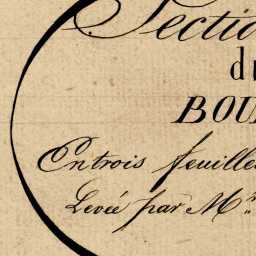 Section
du
BOU
En trois feuilles
Levée par Mr.